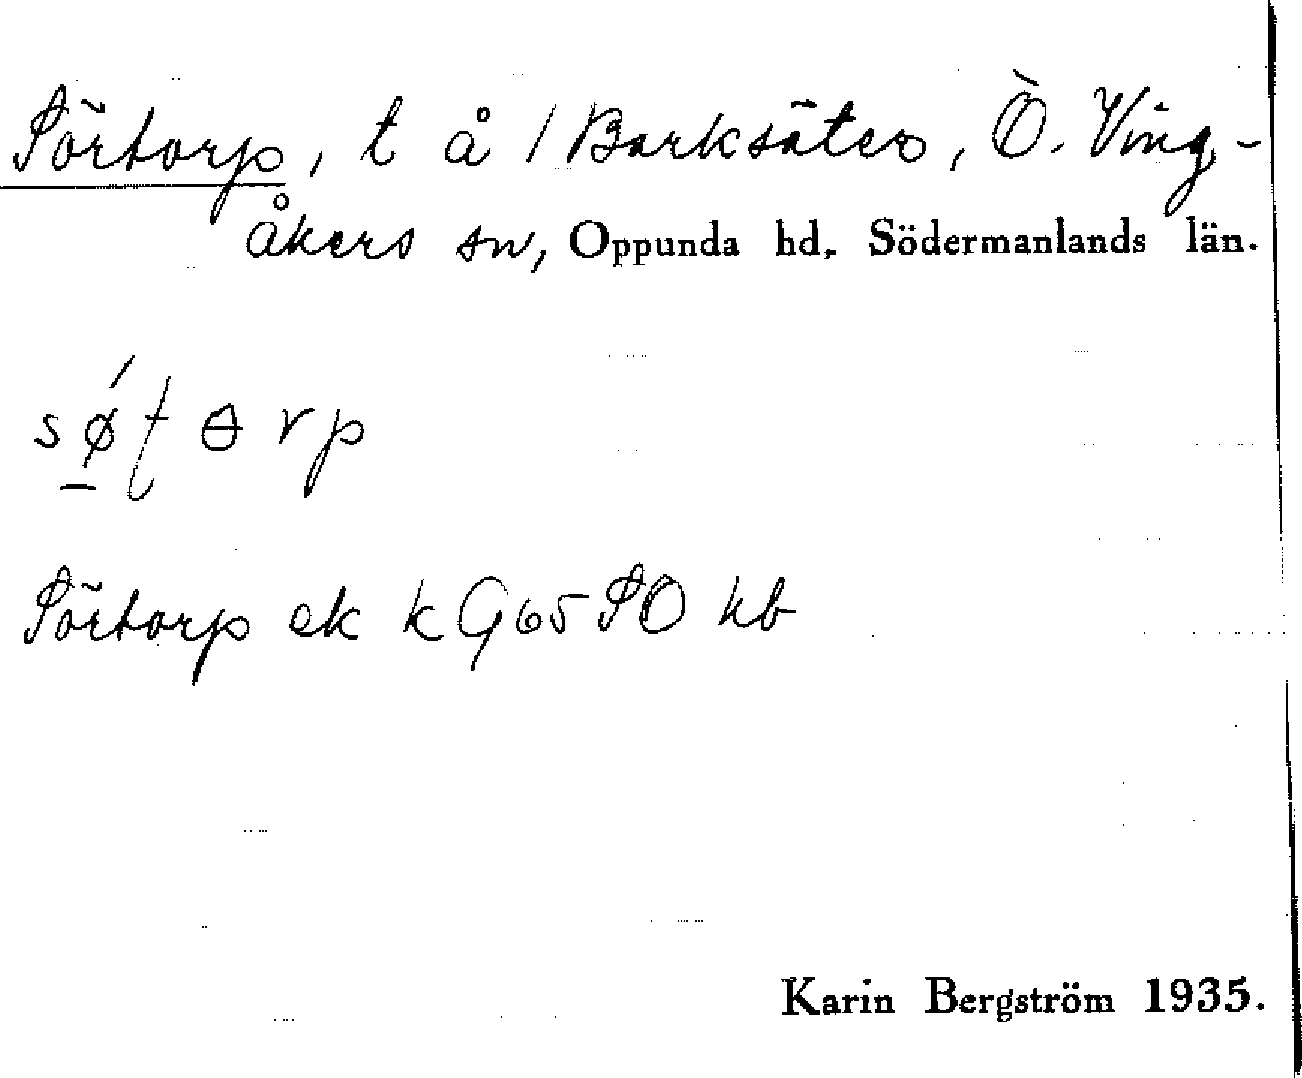 Sörtorp, t å 1 Barksäter, Ö. Ving-
åkers sn, Oppunda hd, Södermanlands län.
Sörtorp ek k G65 SO hb
Karin Bergström 1935.